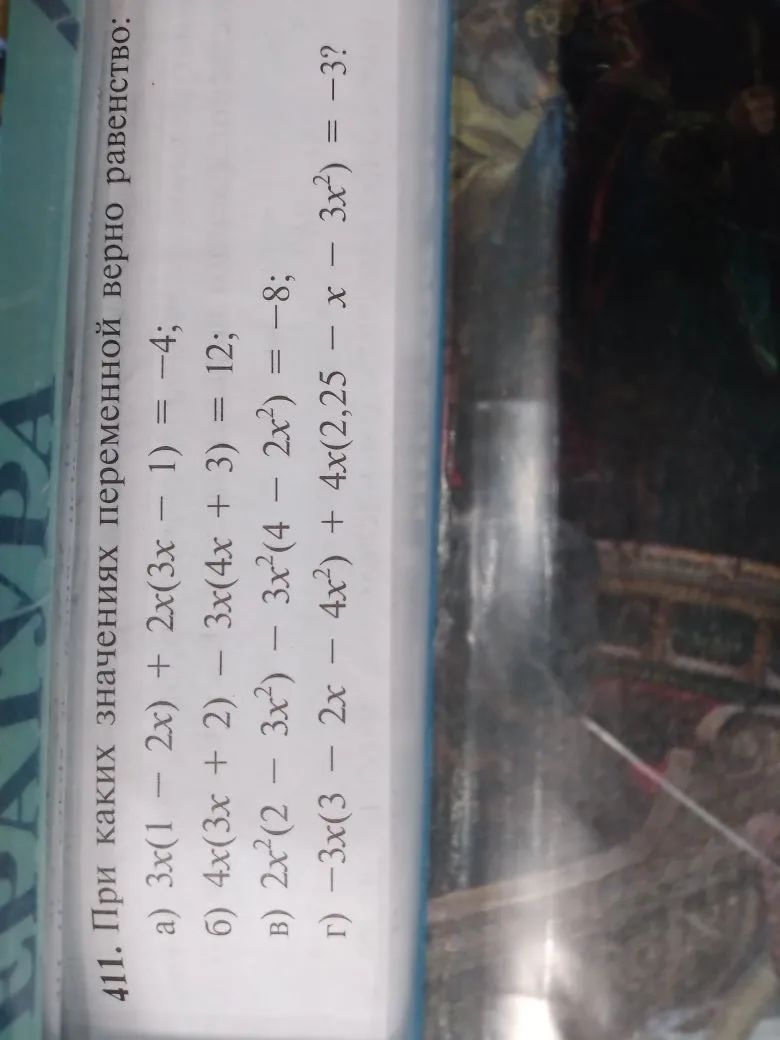 411. При каких значениях переменной верно равенство:
а) 3x(1 − 2x) + 2x(3x − 1) = −4;
б) 4x(3x + 2) − 3x(4x + 3) = 12;
в) 2x²(2 − 3x²) − 3x²(4 − 2x²) = −8;
г) −3x(3 − 2x − 4x²) + 4x(2,25 − x − 3x²) = −3?